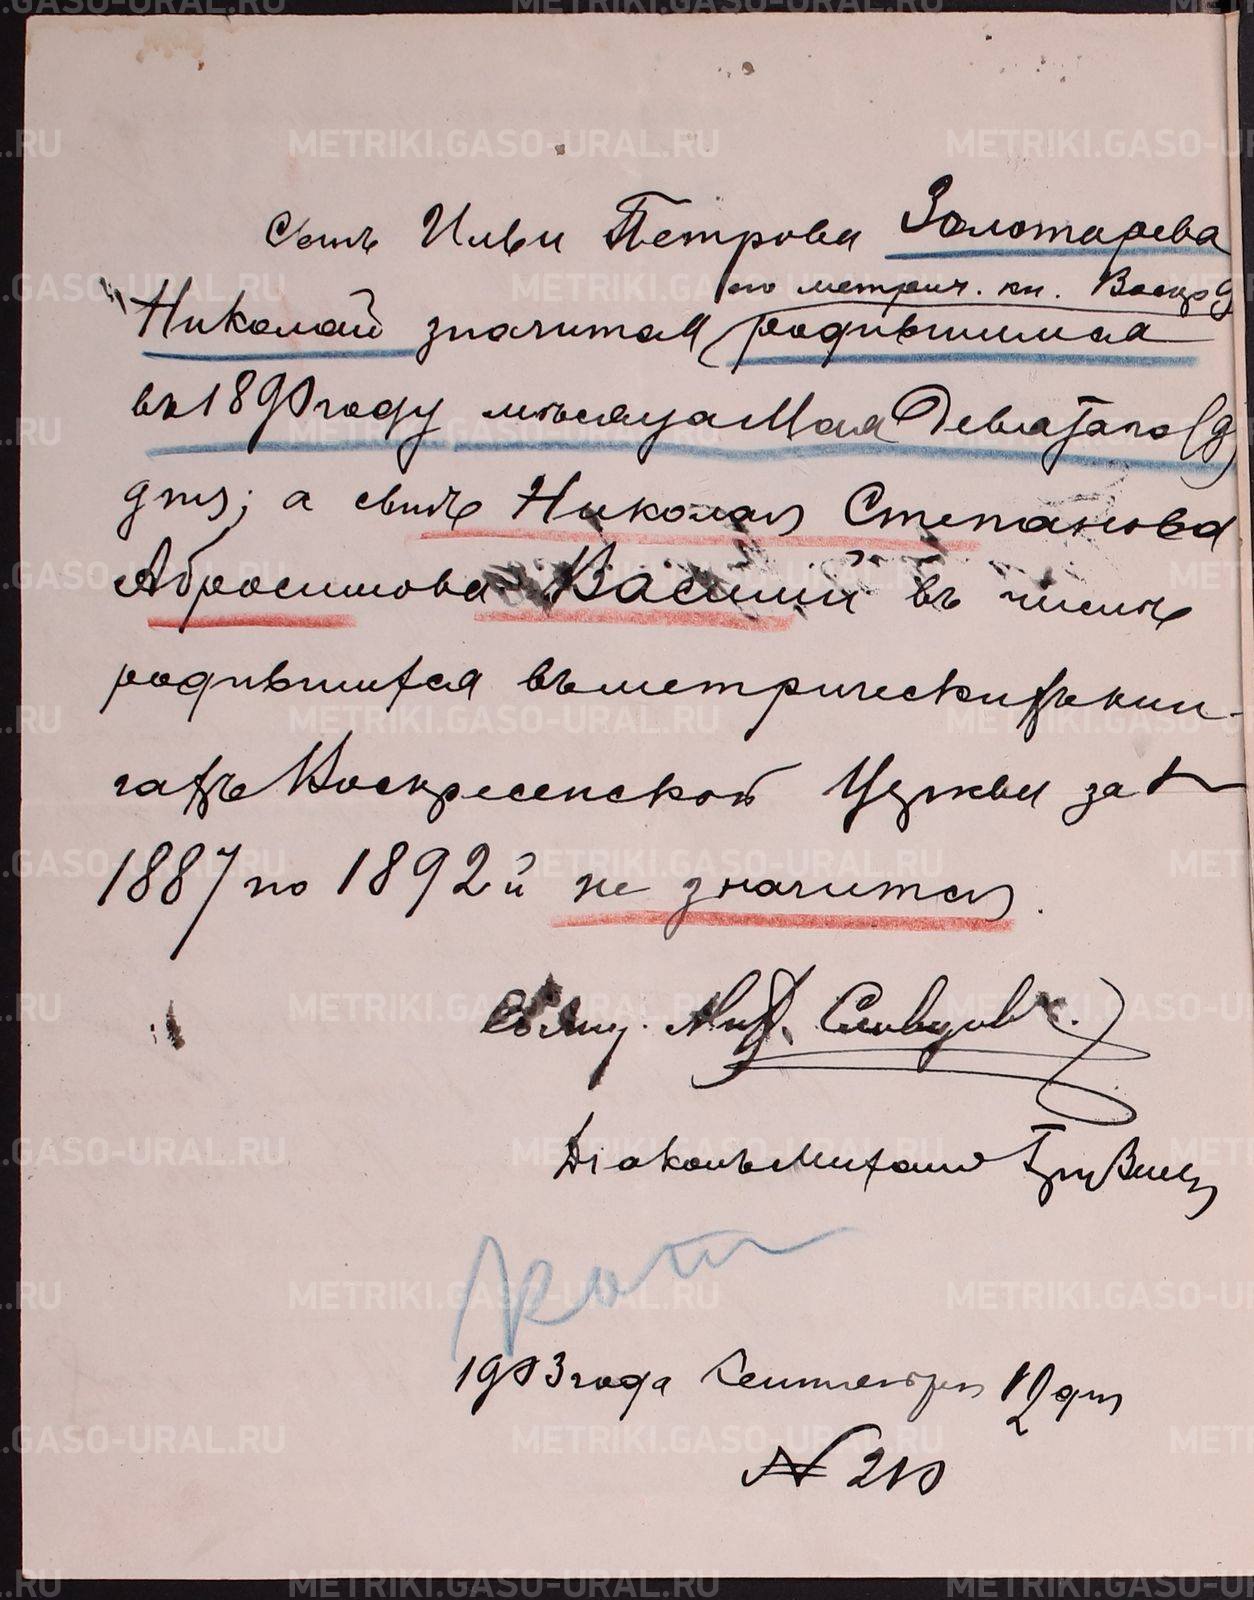 Сынъ Ильи Петрова Золотарева
по метрич. кн. Воскр
Николай значится родившимся
въ 1890 году мѣсяца Мая Девятаго (9)
дня; а сынъ Николая Степанова
Абросимова Василий въ числѣ
родившихся въ метрическихъ кни-
гахъ Воскресенской Церкви за
1887 по 1892й не значится.
Свящ. Словцовъ.
Діаконъ Михаилъ
1903 года Сентября 12 дня
№ 210
METRIKI.GASO-URAL.RU